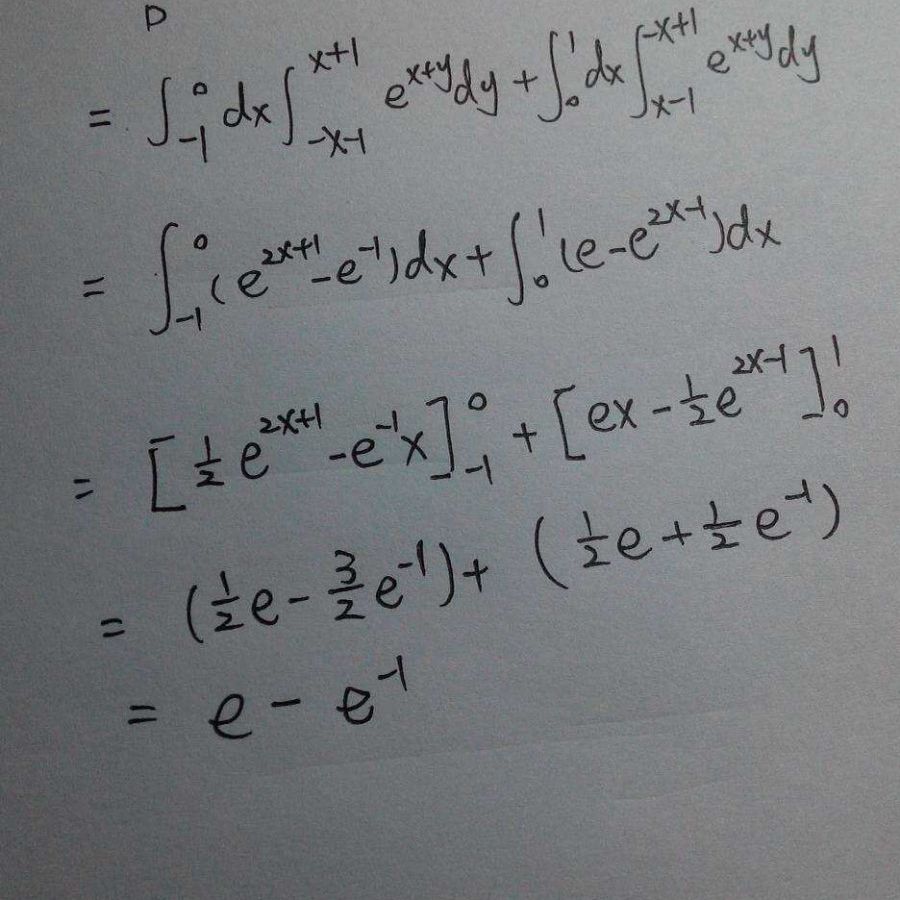 D
= ∫_{-1}^{0} dx ∫_{-x-1}^{x+1} e^{x+y} dy + ∫_{0}^{1} dx ∫_{x-1}^{-x+1} e^{x+y} dy
= ∫_{-1}^{0} (e^{2x+1} - e^{-1}) dx + ∫_{0}^{1} (e - e^{2x-1}) dx
= [½ e^{2x+1} - e^{-1}x]_{-1}^{0} + [ex - ½ e^{2x-1}]_{0}^{1}
= (½ e - 3/2 e^{-1}) + (½ e + ½ e^{-1})
= e - e^{-1}